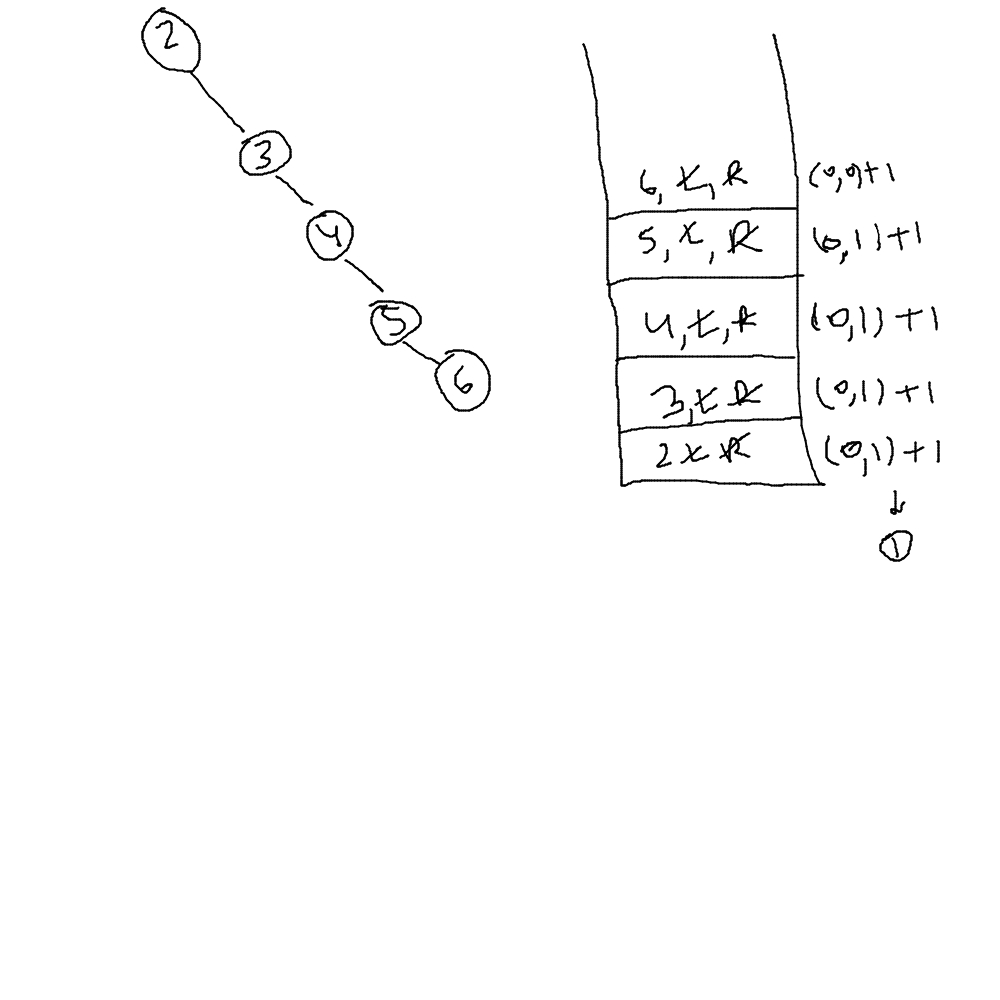 2
3
4
5
6
6, L, R (0,0)+1
5, L, R (0,1)+1
4, L, R (0,1)+1
3, L R (0,1)+1
2 L R (0,1)+1
↓
1